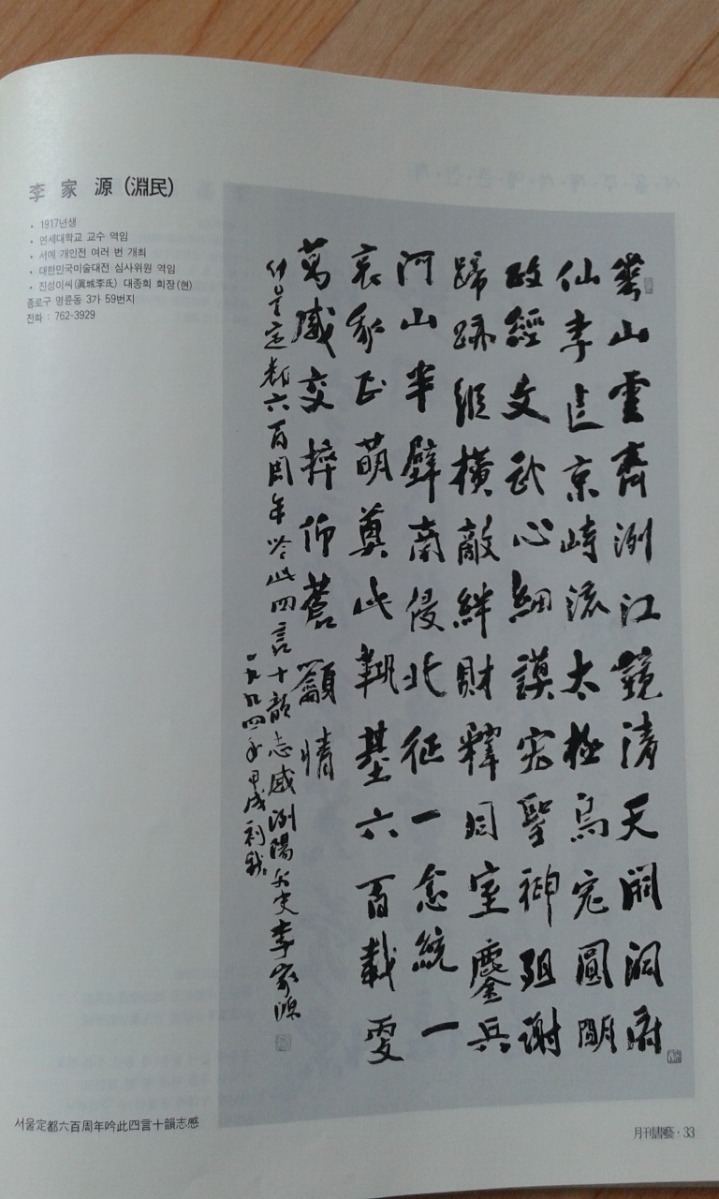 李家源(淵民)
• 1917년생
• 연세대학교 교수 역임
• 서예 개인전 여러 번 개최
• 대한민국미술대전 심사위원 역임
• 진성이씨(眞城李氏) 대종회 회장(현)
종로구 명륜동 3가 59번지
전화 : 762-3929
華山雲齊洌江鏡清天開洞府
仙李京峙流太極圓明
政經文武心細謨宏聖神殂謝
蹄跡縱橫敵絆財釋同室鏖兵
河山半壁南侵北征一念統一
哀我民萌奠此鞏基六百載
萬感交仰蒼籲情
서울定都六百周年吟此四言十韻志感洌陽外史李家源
一九九四年甲戌初秋
서울定都六百周年吟此四言十韻志感
月刊書藝·33